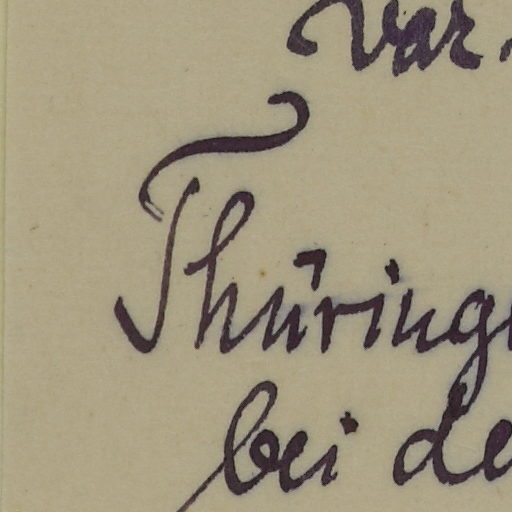 var.
Thüring
bei de